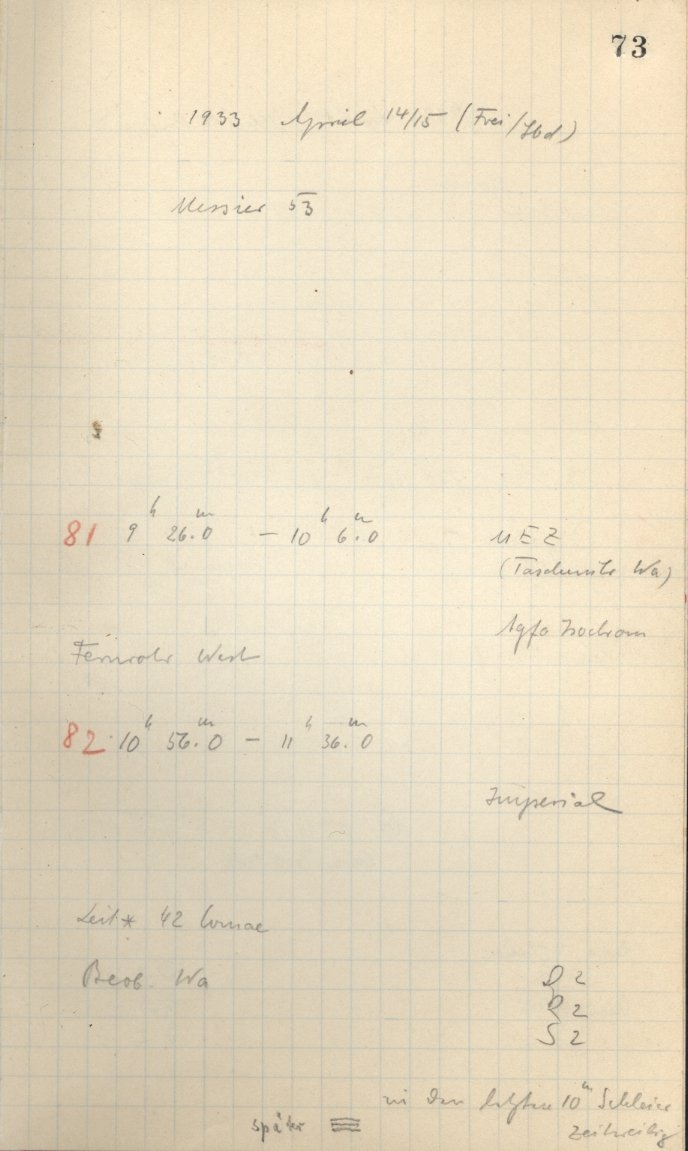 73
1933 April 14/15 (Frei/Sbd)
Messier 53
81 9h 26m.0 – 10h 6m.0 MEZ
(Taschenuhr Wa)
Agfa Isochrom
Fernrohr West
82 10h 56m.0 – 11h 36m.0
Imperial
Leit* 42 Comae
Beob. Wa
2
2
S 2
in den letzten 10m Schleier
zeitweilig
später ≡